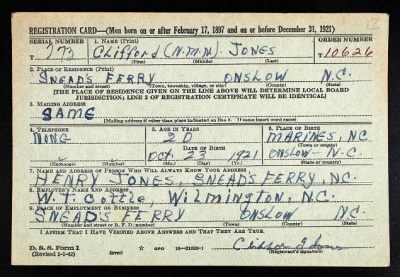 REGISTRATION CARD—(Men born on or after February 17, 1897 and on or before December 31, 1921)
SERIAL NUMBER 1. NAME (Print) ORDER NUMBER
T CLIFFORD (N.M.N) JONES T 10626
(First) (Middle) (Last)
2. PLACE OF RESIDENCE (Print)
SNEADS FERRY ONSLOW N.C.
(Number and street) (Town, township, village, or city) (County) (State)
[THE PLACE OF RESIDENCE GIVEN ON THE LINE ABOVE WILL DETERMINE LOCAL BOARD
JURISDICTION; LINE 2 OF REGISTRATION CERTIFICATE WILL BE IDENTICAL]
3. MAILING ADDRESS
SAME
[Mailing address if other than place indicated on line 2. If same insert word same]
4. TELEPHONE 5. AGE IN YEARS 6. PLACE OF BIRTH
NONE 20 MARINES, NC
DATE OF BIRTH (Town or county)
OCT. 23 1921 ONSLOW - N-C.
(Exchange) (Number) (Mo.) (Day) (Yr.) (State or country)
7. NAME AND ADDRESS OF PERSON WHO WILL ALWAYS KNOW YOUR ADDRESS
HENRY JONES, SNEADS FERRY, NC
8. EMPLOYER'S NAME AND ADDRESS
W.T. Cottle, WILMINGTON, NC.
9. PLACE OF EMPLOYMENT OR BUSINESS
SNEADS FERRY ONSLOW N.C.
(Number and street or R. F. D. number) (Town) (County) (State)
I AFFIRM THAT I HAVE VERIFIED ABOVE ANSWERS AND THAT THEY ARE TRUE.
D. S. S. Form 1 GPO
(Revised 1-1-42) (over) (Registrant's signature)